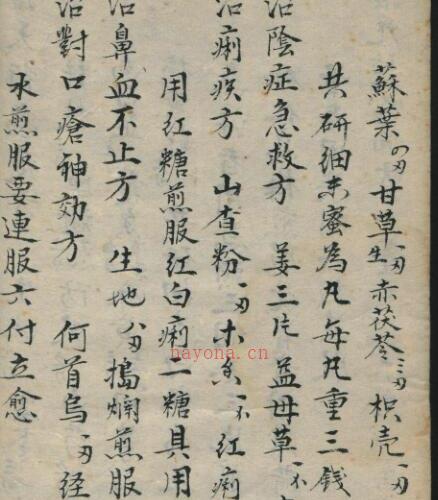 蘇葉四刄甘草生一刄赤茯苓三刄枳壳一刄
共研细末蜜為丸每丸重三錢
治陰症急救方 姜三片 益母草
治痢疾方 山查粉一刄木香 红痢
用红糖煎服红白痢二糖具用
治鼻血不止方 生地八刄搗爛煎服
治對口瘡神効方 何首烏一刄经
水煎服要連服六付立愈
nayona.cn